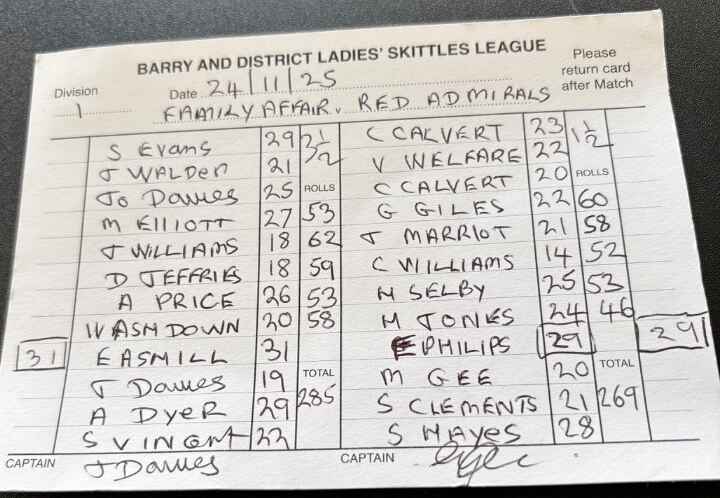 BARRY AND DISTRICT LADIES' SKITTLES LEAGUE
Division 1
Date 24/11/25
Please return card after Match
FAMILY AFFAIR. RED ADMIRALS
S Evans 29 3½ C CALVERT 23 1½
J WALDEN 21 V WELFARE 22
Jo Davies 25 ROLLS C CALVERT 20 ROLLS
M Elliott 27 53 G GILES 22 60
J WILLIAMS 18 62 J MARRIOT 21 58
D JEFFRIES 18 59 C WILLIAMS 14 52
A PRICE 26 53 M SELBY 25 53
WASHDOWN 20 58 M JONES 24 46
31 E ASMILL 31 E PHILIPS 29 291
J Davies 19 TOTAL M GEE 20 TOTAL
A DYER 29 285 S CLEMENTS 21 269
S VINCENT 22 S HAYES 28
CAPTAIN J Davies CAPTAIN